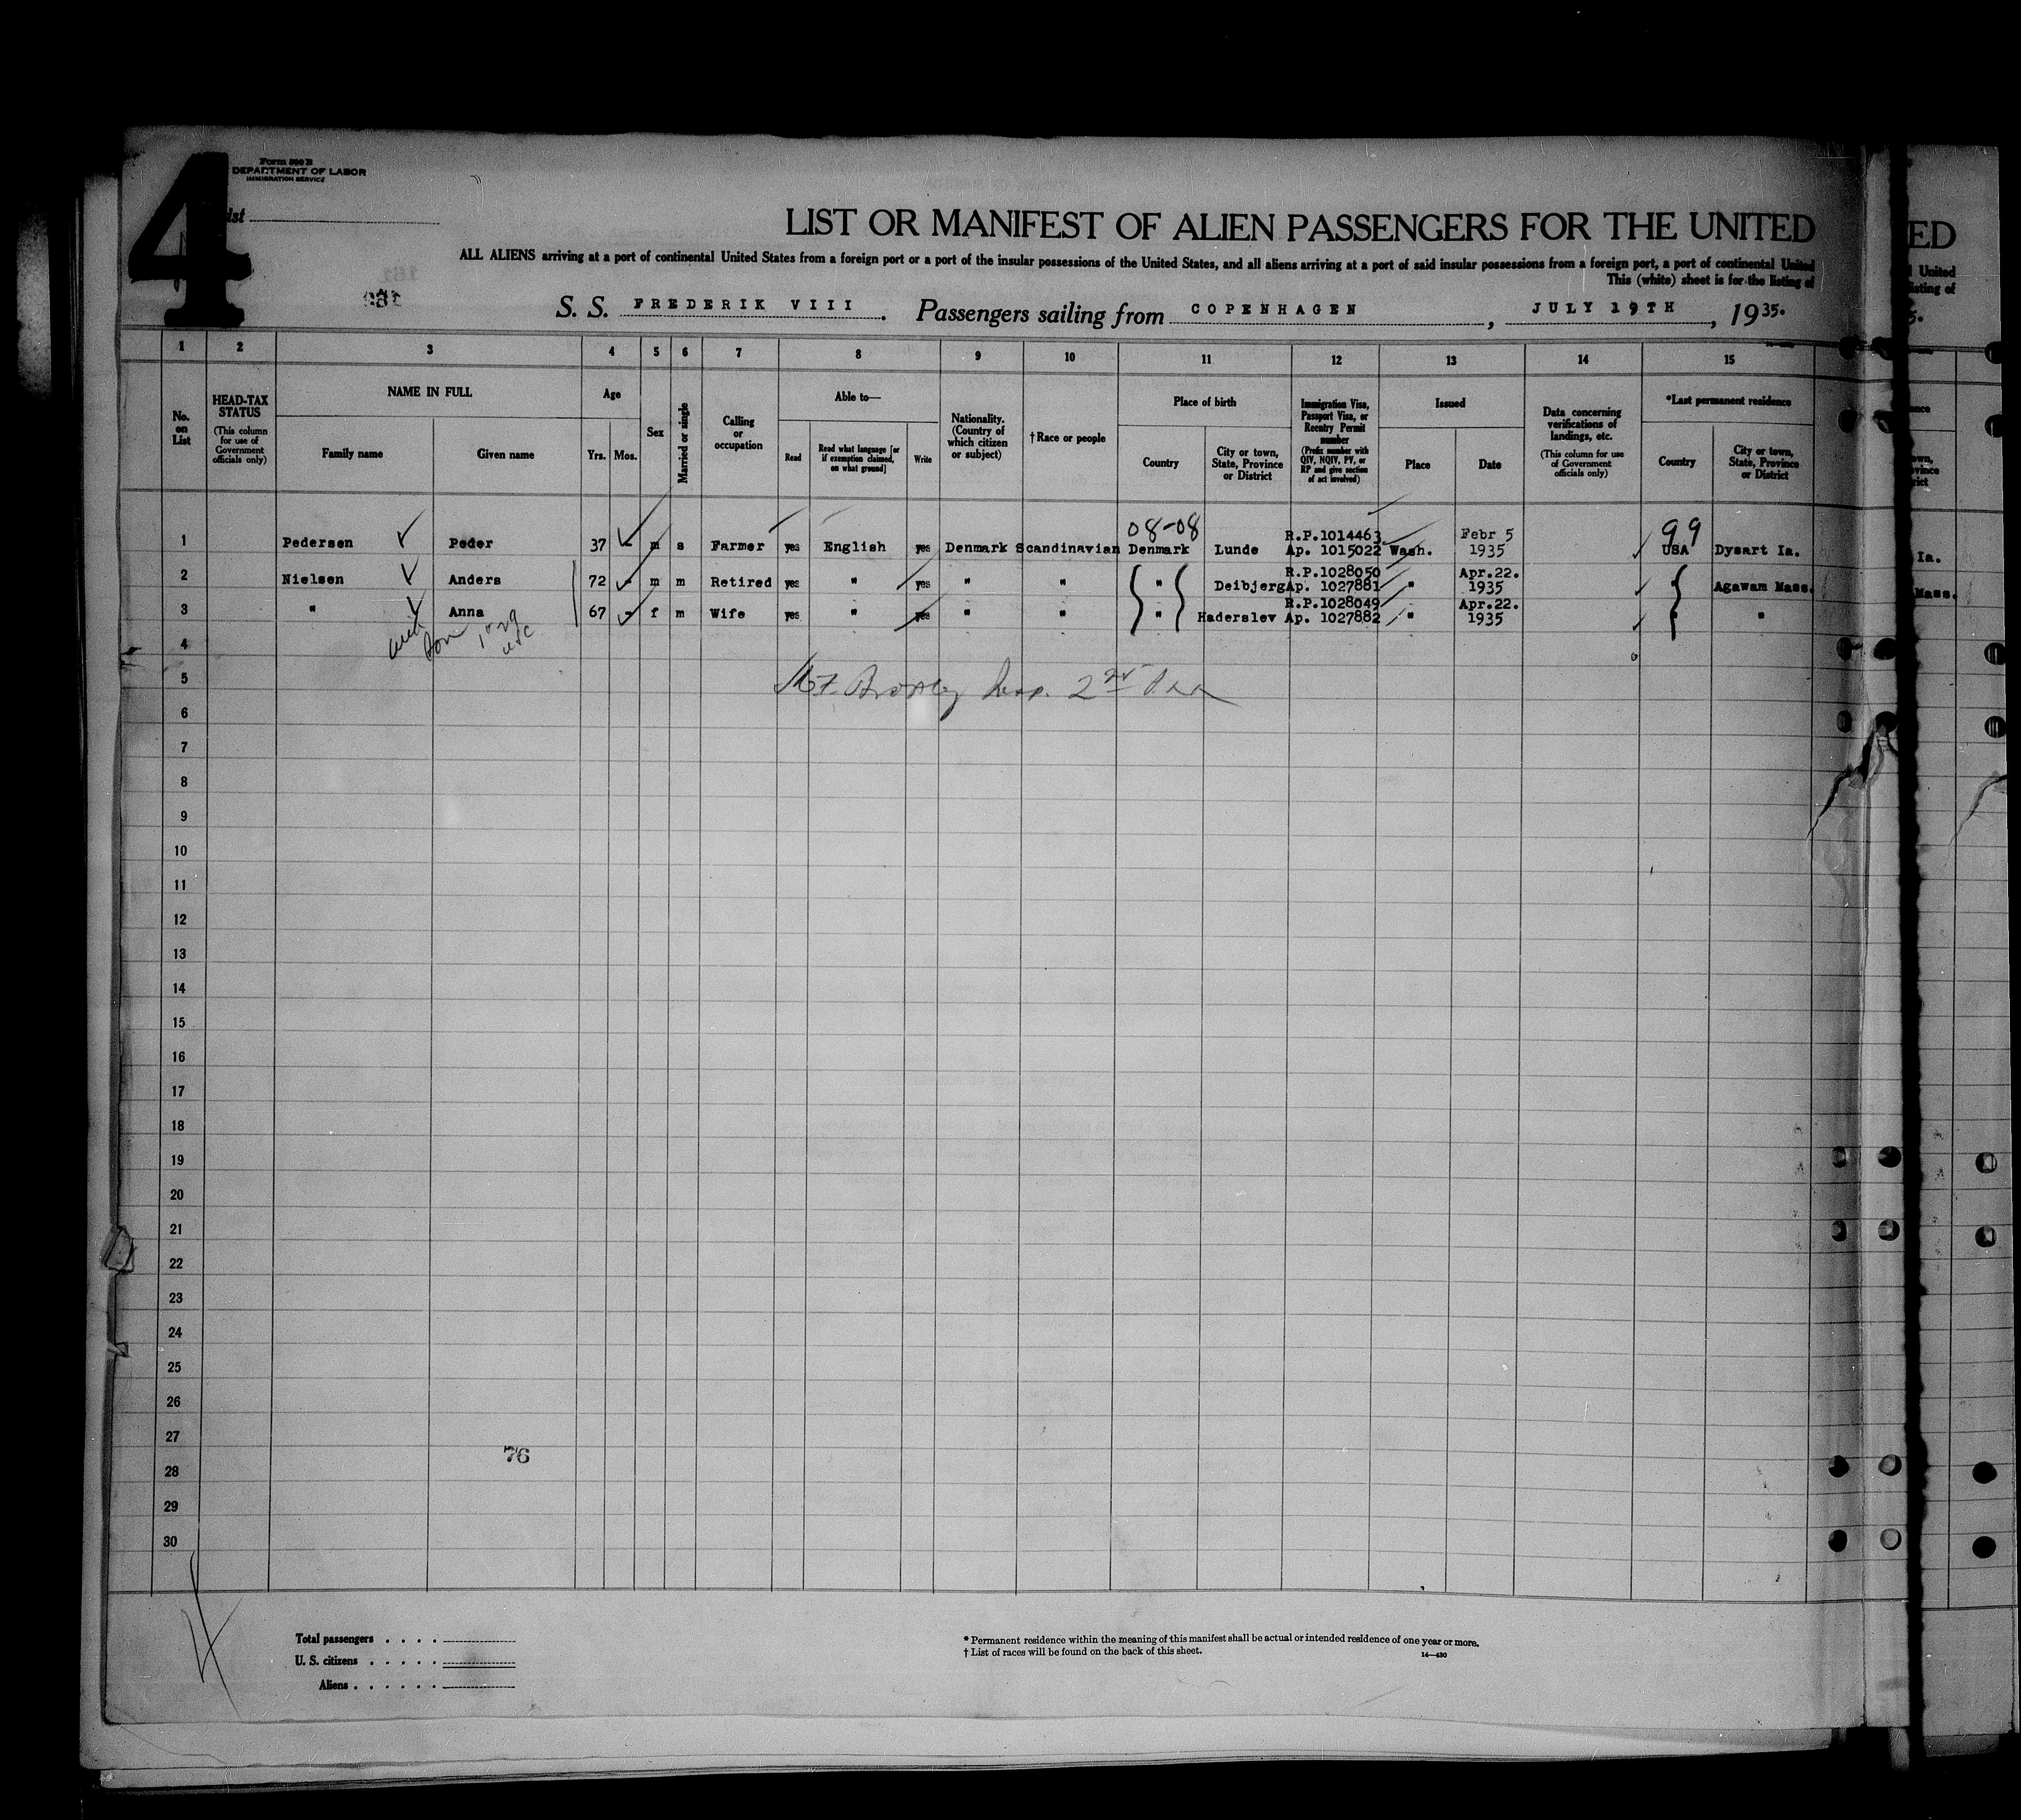 4
Form 500 B
DEPARTMENT OF LABOR
IMMIGRATION SERVICE
List
LIST OR MANIFEST OF ALIEN PASSENGERS FOR THE UNITED
ALL ALIENS arriving at a port of continental United States from a foreign port or a port of the insular possessions of the United States, and all aliens arriving at a port of said insular possessions from a foreign port, a port of continental United
This (white) sheet is for the listing of
S. S. FREDERIK VIII. Passengers sailing from COPENHAGEN, JULY 19TH, 1935.
1 2 3 4 5 6 7 8 9 10 11 12 13 14 15
No. on List
HEAD-TAX STATUS (This column for use of Government officials only)
NAME IN FULL
Family name Given name
Age
Yrs. Mos.
Sex
Married or single
Calling or occupation
Able to—
Read
Read what language [or if exemption claimed, on what ground]
Write
Nationality. (Country of which citizen or subject)
†Race or people
Place of birth
Country
City or town, State, Province or District
Immigration Visa, Passport Visa, or Reentry Permit number (Prefix number with QIV, NQIV, PV, or RP and give section of act involved)
Issued
Place Date
Data concerning verifications of landings, etc. (This column for use of Government officials only)
*Last permanent residence
Country
City or town, State, Province or District
08-08 99
1 Pedersen Peder 37 - m s Farmer yes English yes Denmark Scandinavian Denmark Lunde R.P.1014463 Ap. 1015022 Wash. Febr 5 1935 USA Dysart Ia.
2 Nielsen Anders 72 - m m Retired yes " yes " " " Deibjerg R.P.1028050 Ap. 1027881 " Apr.22. 1935 " Agawam Mass.
3 " Anna 67 - f m Wife yes " yes " " " Haderslev R.P.1028049 Ap. 1027882 " Apr.22. 1935 " "
4
5
6
7
8
9
10
11
12
13
14
15
16
17
18
19
20
21
22
23
24
25
26
27
76
28
29
30
Total passengers . . . .
U. S. citizens . . . . .
Aliens . . . . . .
* Permanent residence within the meaning of this manifest shall be actual or intended residence of one year or more.
† List of races will be found on the back of this sheet.
14—430